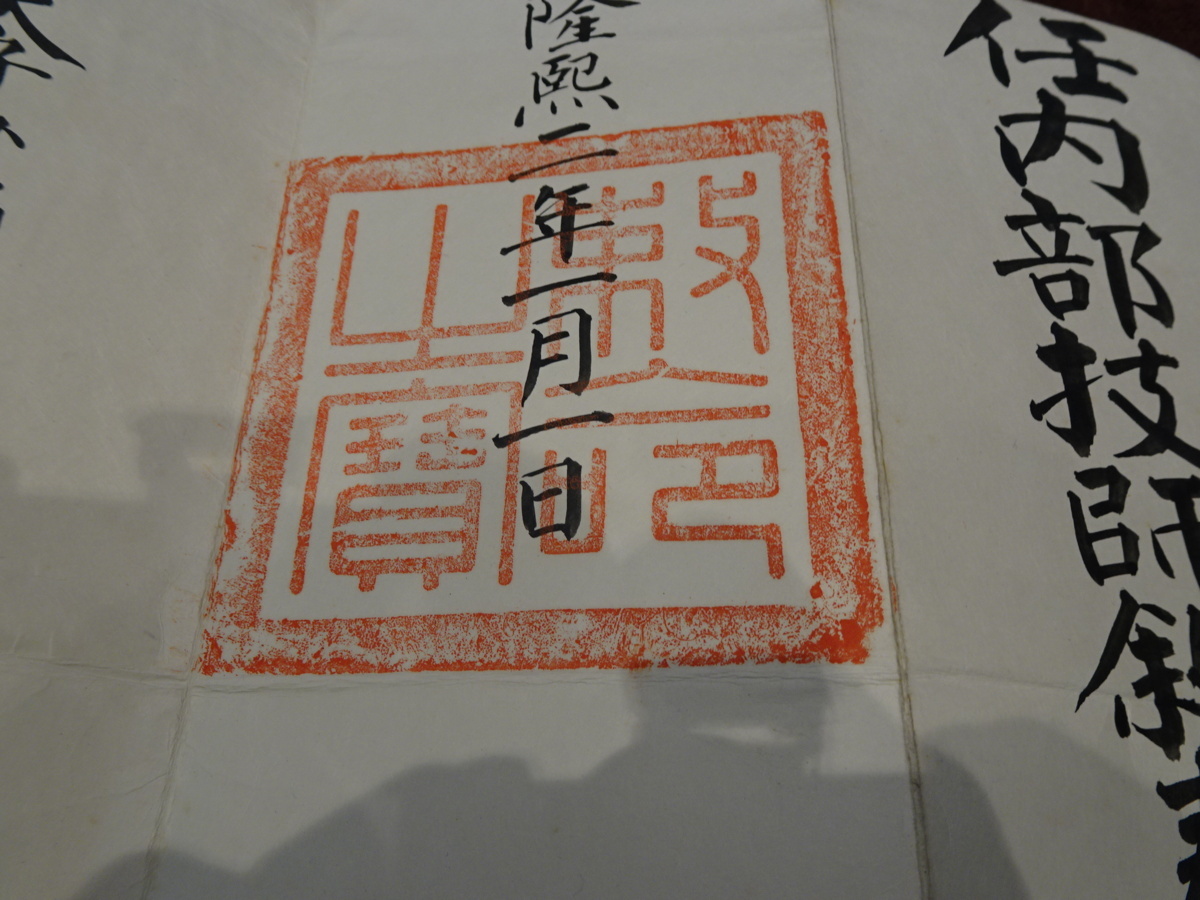 任内部技師
隆熙二年一月一日
敕命之寶